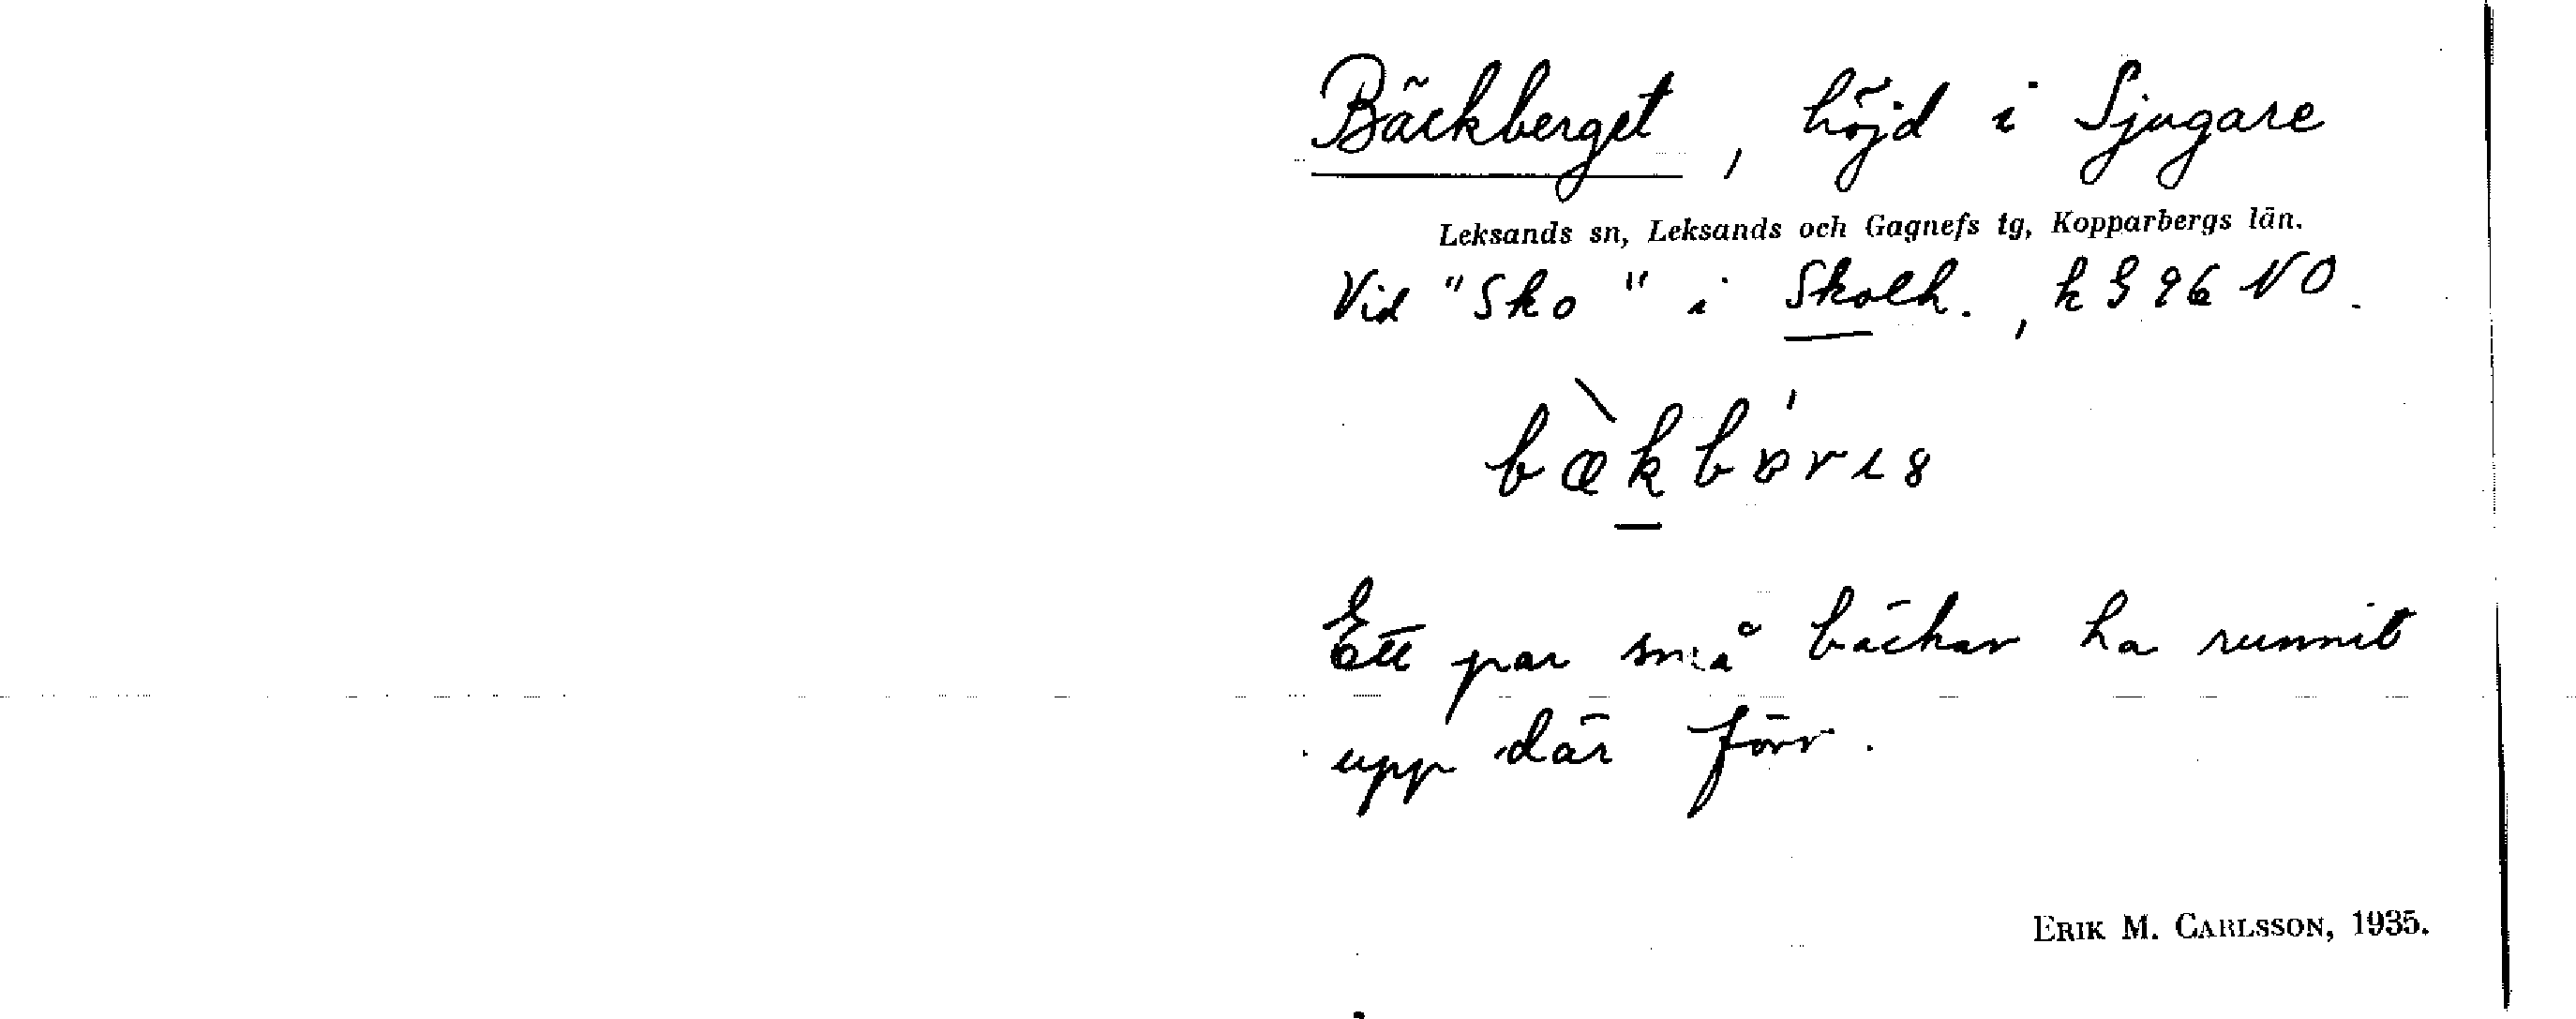 Bäckberget, höjd i Sjugare
Leksands sn, Leksands och Gagnefs tg, Kopparbergs län.
Vid "Sko" i Skolh., k 396 NO.
Ett par små bäckar ha runnit
upp där förr.
ERIK M. CARLSSON, 1935.